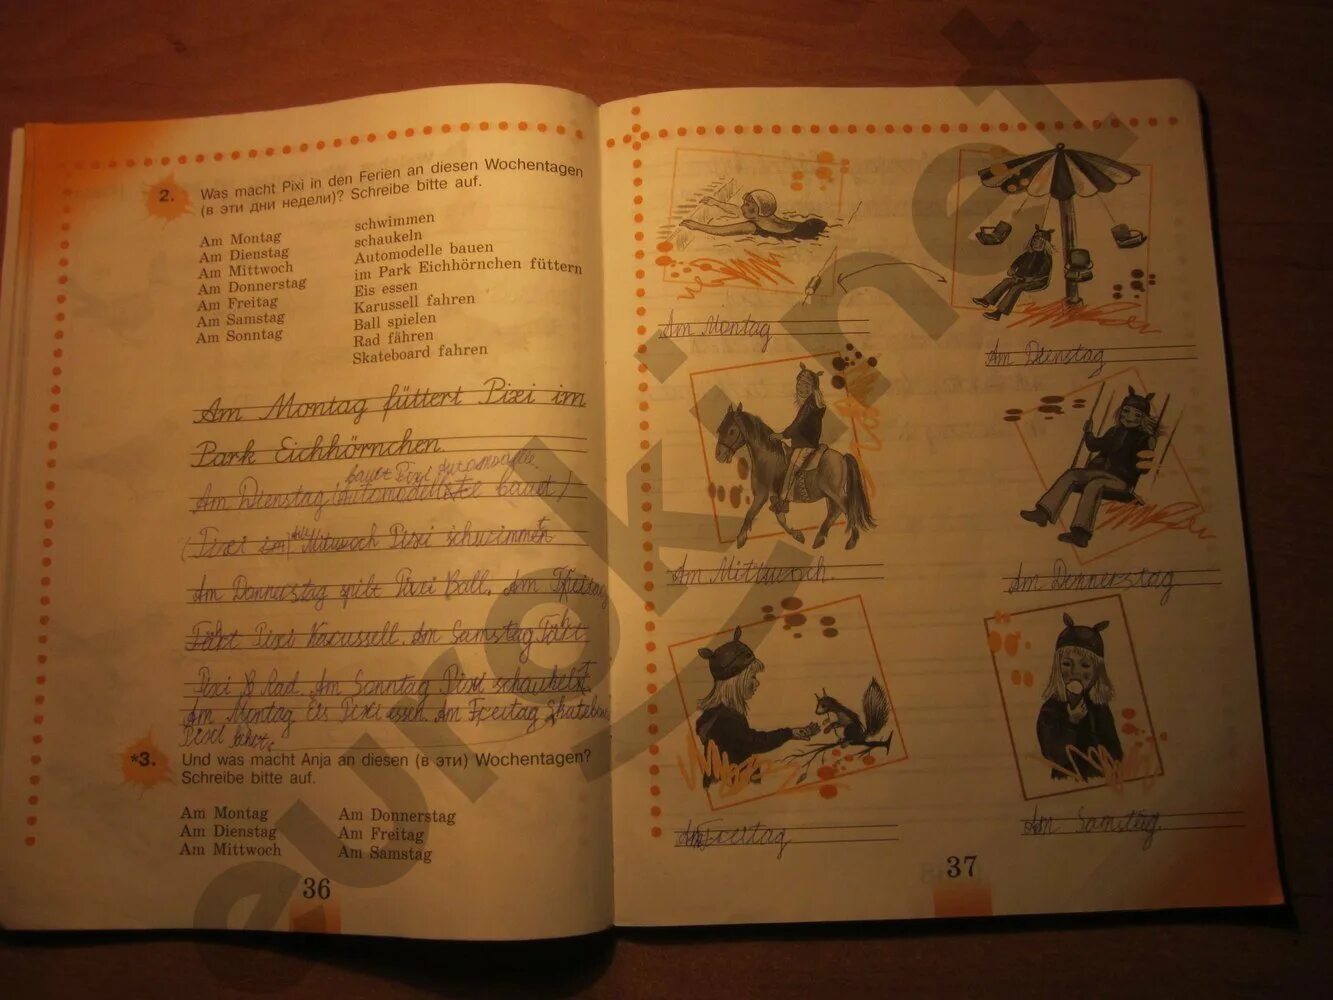 2. Was macht Pixi in den Ferien an diesen Wochentagen
(в эти дни недели)? Schreibe bitte auf.
Am Montag
Am Dienstag
Am Mittwoch
Am Donnerstag
Am Freitag
Am Samstag
Am Sonntag
schwimmen
schaukeln
Automodelle bauen
im Park Eichhörnchen füttern
Eis essen
Karussell fahren
Ball spielen
Rad fähren
Skateboard fahren
Am Montag füttert Pixi im
Park Eichhörnchen.
baut Pixi Automodelle.
Am Dienstag (Automodelle baut)
(Pixi Mittwoch Pixi schwimmt
Am Donnerstag spilt Pixi Ball. Am Freitag
Fährt Pixi Karussell. Am Samstag Fält
Pixi Rad. Am Sonntag Pixi schaukelt.
Am Montag Eis Pixi essen. Am Freitag Skateboard
Pixi fährt.
*3. Und was macht Anja an diesen (в эти) Wochentagen?
Schreibe bitte auf.
Am Montag
Am Dienstag
Am Mittwoch
Am Donnerstag
Am Freitag
Am Samstag
36
Am Montag
Am Dienstag
Am Mittwoch.
Am Donnerstag
Am Freitag
Am Samstag.
37
euroki.net